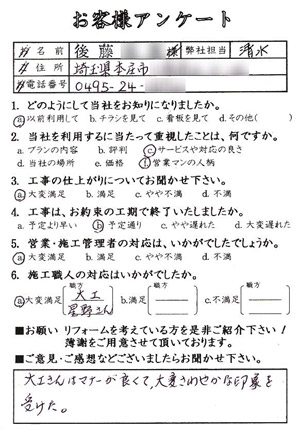 お客様アンケート
お名前 後藤 様 弊社担当 清水
ご住所 埼玉県本庄市
お電話番号 0495-24-
1. どのようにして当社をお知りになりましたか。
ⓐ以前利用して b.チラシを見て c.看板を見て d.その他( )
2. 当社を利用するに当たって重視したことは、何ですか。
a.プランの内容 b.評判 ⓒサービスや対応の良さ
d.当社の場所 e.価格 ⓕ営業マンの人柄
3. 工事の仕上がりについてお聞かせ下さい。
ⓐ大変満足 b.満足 c.やや不満 d.不満
4. 工事は、お約束の工期で終了いたしましたか。
a.予定より早い ⓑ予定通り c.やや遅れた d.大変遅れた
5. 営業・施工管理者の対応は、いかがでしたでしょうか。
ⓐ大変満足 b.満足 c.やや不満 d.不満
6. 施工職人の対応はいかがでしたか。
ⓐ大変満足 [職方 大工 星野さん] b.満足 [職方 ] c.不満足 [職方 ]
■お願い リフォームを考えている方を是非ご紹介下さい!
薄謝をご用意させて頂いております。
■ご意見・ご感想などございましたらお聞かせ下さい。
大工さんはマナーが良くて、大変さわやかな印象を
受けた。